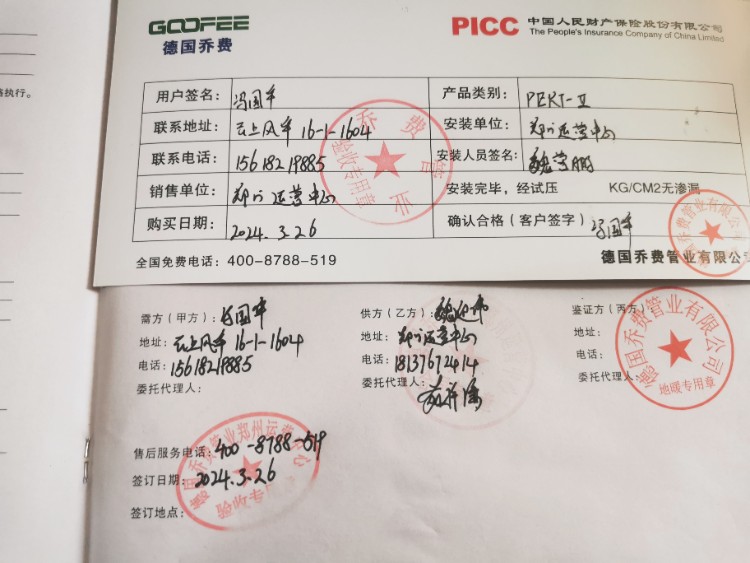 格执行。
GOOFEE
德国乔费
PICC 中国人民财产保险股份有限公司
The People's Insurance Company of China Limited
用户签名：冯国军 产品类别：PERT-Ⅱ
联系地址：云上风华 16-1-1604 安装单位：郑州运营中心
联系电话：15618219885 安装人员签名：
销售单位：郑州运营中心 安装完毕，经试压 KG/CM2无渗漏
购买日期：2024.3.26 确认合格（客户签字）冯国军
全国免费电话：400-8788-519 德国乔费管业有限公司
乔费管业
验收专用章
德国乔费管业有限公司
需方（甲方）：冯国军 供方（乙方）： 鉴证方（丙方）：
地址：云上风华 16-1-1604 地址：郑州运营中心 地址：
电话：15618219885 电话：18137672414 电话：
委托代理人： 委托代理人： 委托代理人：
德国乔费管业有限公司
地暖专用章
售后服务电话：400-8788-519
签订日期：2024.3.26
签订地点：
德国乔费管业郑州运营中心
验收专用章